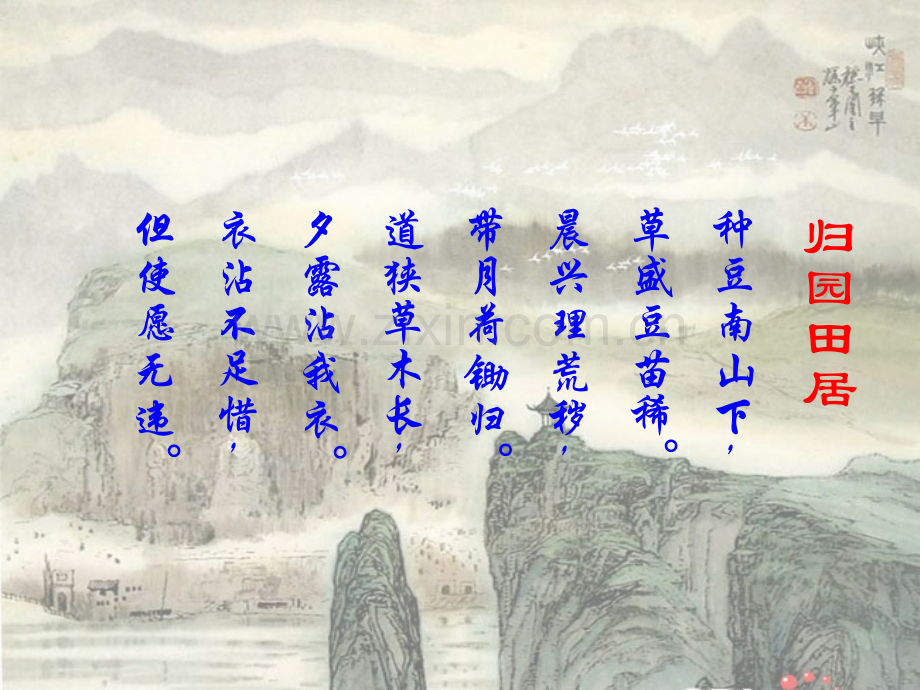 归园田居
种豆南山下，
草盛豆苗稀。
晨兴理荒秽，
带月荷锄归。
道狭草木长，
夕露沾我衣。
衣沾不足惜，
但使愿无违。